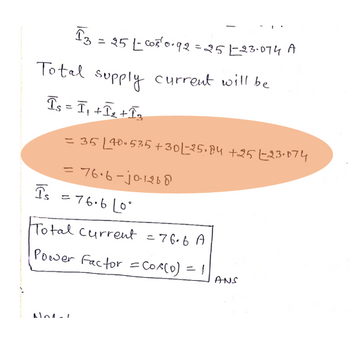 Ī₃ = 25 ∠-cos⁻¹0.92 = 25 ∠-23.074 A
Total supply current will be
Īs = Ī₁ + Ī₂ + Ī₃
= 35 ∠40.535 + 30∠-25.84 + 25 ∠-23.074
= 76.6 - j0.1268
Īs = 76.6 ∠0°
Total current = 76.6 A
Power Factor = Cos(0) = 1
ANS